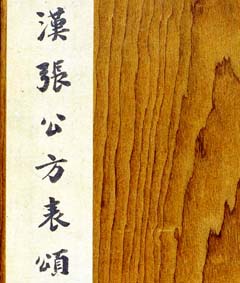 漢張公方表頌